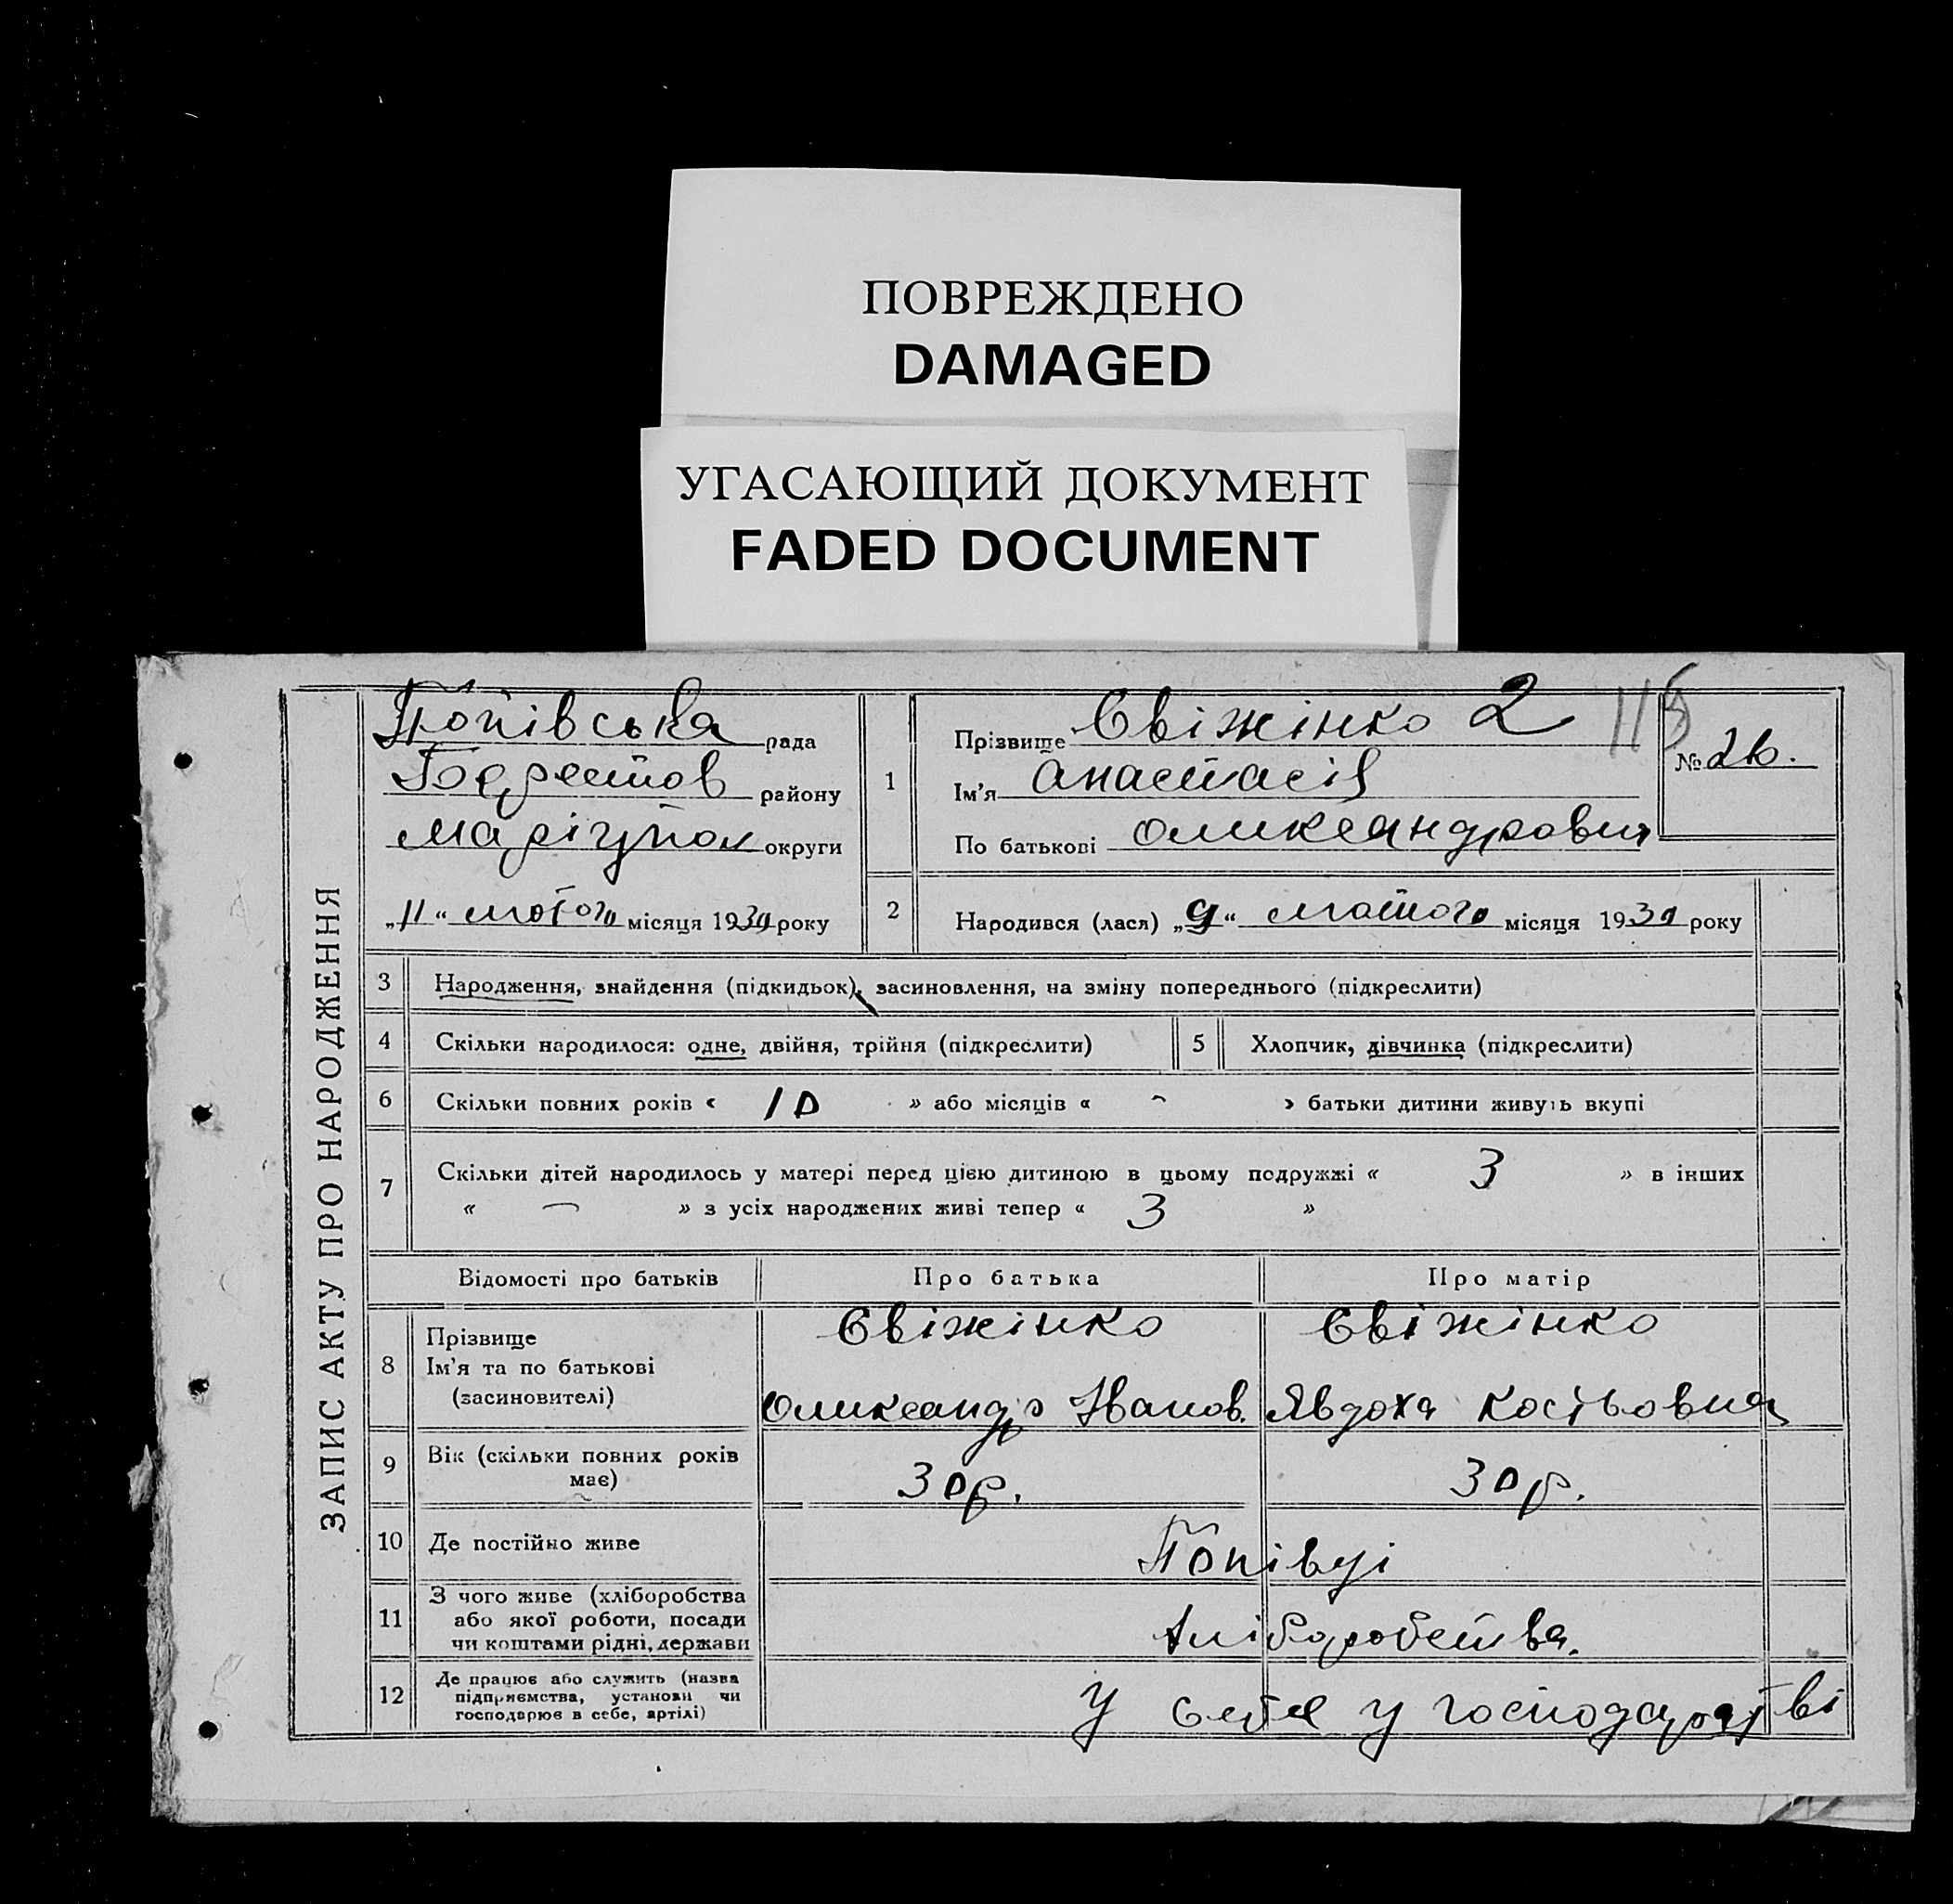 ПОВРЕЖДЕНО
DAMAGED
УГАСАЮЩИЙ ДОКУМЕНТ
FADED DOCUMENT
ЗАПИС АКТУ ПРО НАРОДЖЕННЯ
Попівська рада
району
Маріупол округи
„11“ лютого місяця 1930 року
1
Прізвище Свіжінко 2
Ім'я Анастасія
По батькові Оликсандровня
115
№ 26.
2
Народився (лася) „9“ лютого місяця 1930 року
3 Народження, знайдення (підкидьок), засиновлення, на зміну попереднього (підкреслити)
4 Скільки народилося: одне, двійня, трійня (підкреслити) 5 Хлопчик, дівчинка (підкреслити)
6 Скільки повних років « 10 » або місяців « - » батьки дитини живуть вкупі
7 Скільки дітей народилось у матері перед цією дитиною в цьому подружжі « 3 » в інших
« — » з усіх народжених живі тепер « 3 »
Відомості про батьків Про батька Про матір
8 Прізвище Свіжінко Свіжінко
Ім'я та по батькові
(засиновителі) Оликсандр Іванов. Явдоха Костьовна
9 Вік (скільки повних років
має) 30р. 30р.
10 Де постійно живе Попівці
11 З чого живе (хліборобства
або якої роботи, посади
чи коштами рідні, держави Хліборобства.
12 Де працює або служить (назва
підприємства, установи чи
господорює в себе, артілі) У себе у господарстві